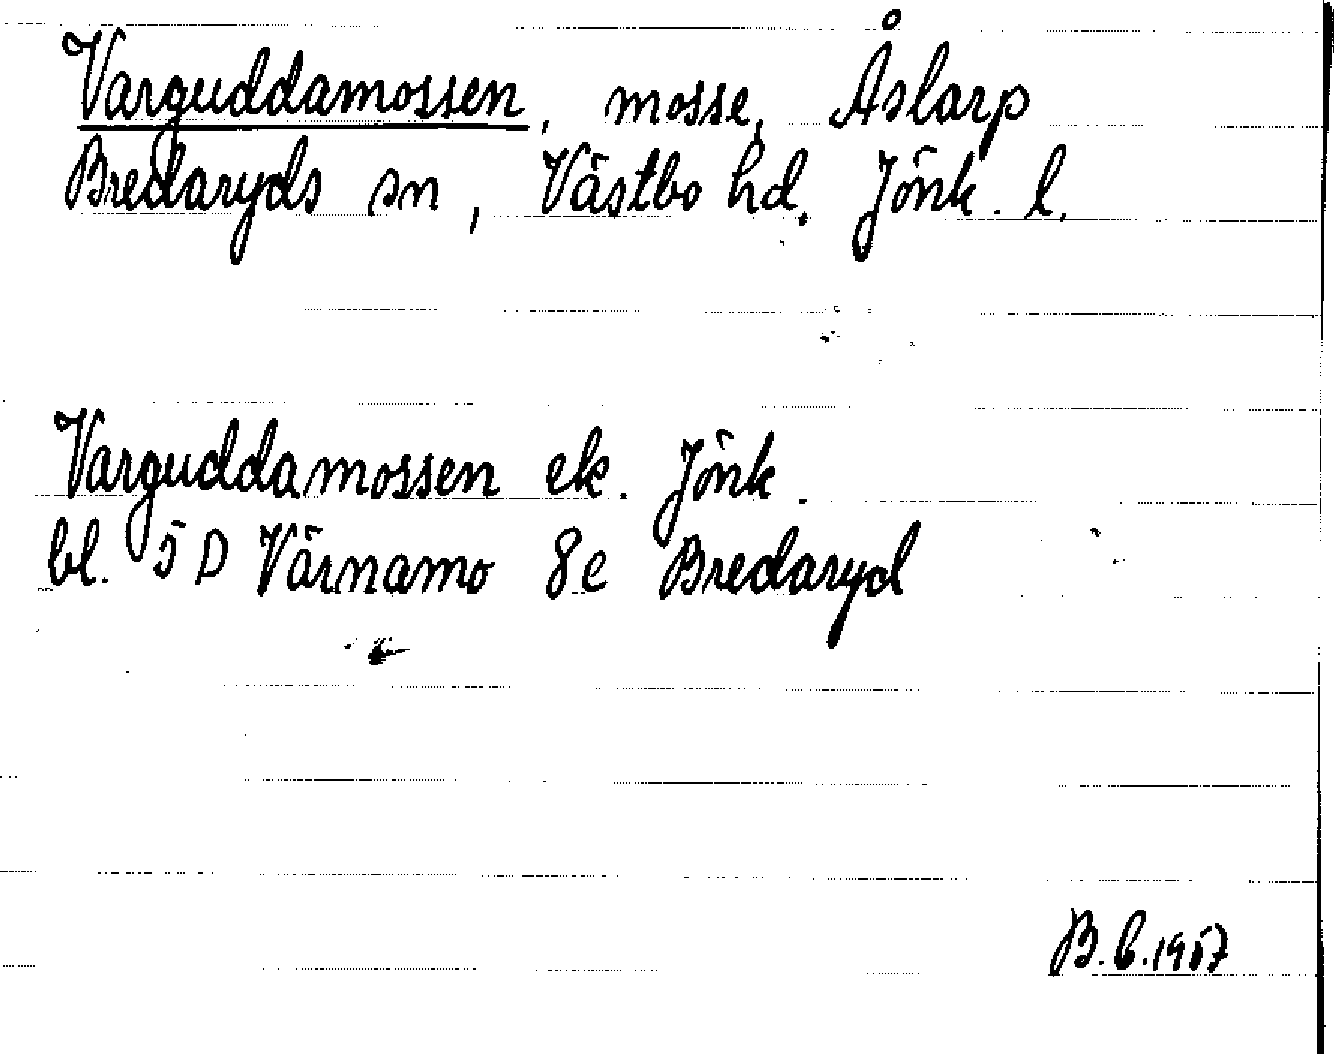 Varguddamossen, mosse, Åslarp
Bredaryds sn, Västbo hd. Jönk. l.
Varguddamossen ek. Jönk.
bl. 5 D Värnamo 8e Bredaryd
B.b.1957